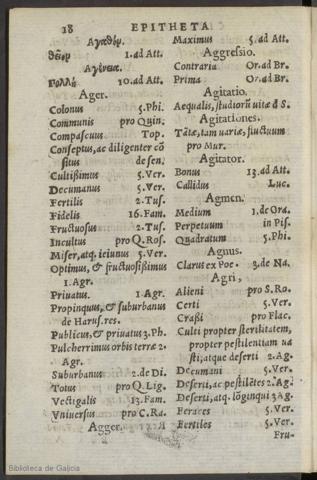 18 EPITHETA
Ἀγαθόν.
θεῖον 1. ad Att.
Ἀγέννεια.
πολλὴ 10. ad Att.
Ager.
Colonus 5. Phi.
Communis pro Quin.
Compascuus Top.
Conseptus, ac diligenter cõ
situs de sen.
Cultißimus 5. Ver.
Decumanus 5. Ver.
Fertilis 2. Tus.
Fidelis 16. Fam.
Fructuosus 2. Tus.
Incultus pro Q. Ros.
Miser, atq; ieiunus 5. Ver.
Optimus, & fructuosißimus
1. Agr.
Priuatus 1. Agr.
Propinquus, & suburbanus
de Harus. res.
Publicus, & priuatus 3. Ph.
Pulcherrimus orbis terræ 2.
Agr.
Suburbanus 2. de Di.
Totus pro Q. Lig.
Vectigalis 13. Fam.
Vniuersus pro C. Ra.
Agger.
Maximus 5. ad Att.
Aggressio.
Contraria Or. ad Br.
Prima Or. ad Br.
Agitatio.
Aequalis, studiorũ uitæ d̃ S.
Agitationes.
Tãtæ, tam uariæ, fluctuum
pro Mur.
Agitator.
Bonus 13. ad Att.
Callidus Luc.
Agmen.
Medium 1. de Ora.
Perpetuum in Pis.
Quadratum 5. Phi.
Agnus.
Clarus ex Poe. 3. de Na.
Agri,
Alieni pro S. Ro.
Certi 5. Ver.
Craßi pro Flac.
Culti propter sterilitatem,
propter pestilentiam ua
sti, atque deserti 2. Ag.
Decumani 5. Ver.
Deserti, ac pestilẽtes 2. Ag.
Deserti, atq; lõginqui 3 Ag.
Feraces 5. Ver.
Fertiles 5. Ver.
Fru-
Biblioteca de Galicia